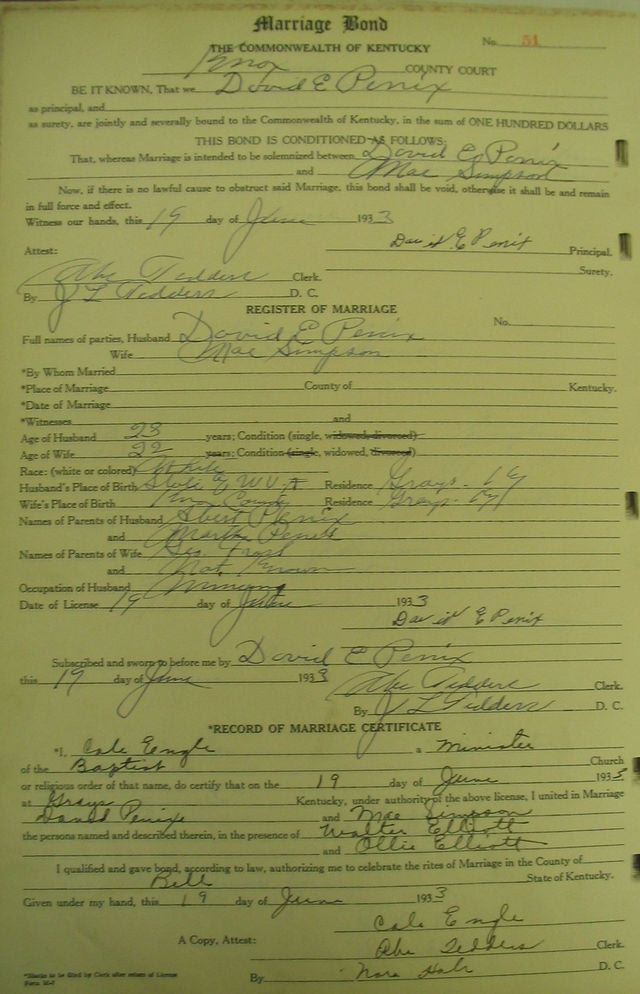 Marriage Bond
No. 51
THE COMMONWEALTH OF KENTUCKY
Knox COUNTY COURT
BE IT KNOWN, That we David E Penix
as principal, and
as surety, are jointly and severally bound to the Commonwealth of Kentucky, in the sum of ONE HUNDRED DOLLARS
THIS BOND IS CONDITIONED AS FOLLOWS:
That, whereas Marriage is intended to be solemnized between David E Penix
and Mae Simpson
Now, if there is no lawful cause to obstruct said Marriage, this bond shall be void, otherwise it shall be and remain
in full force and effect.
Witness our hands, this 19 day of June 1933
David E Penix Principal.
Attest:
Surety.
Abe Tedders Clerk.
By J L Tedders D. C.
REGISTER OF MARRIAGE
No.
Full names of parties, Husband David E Penix
Wife Mae Simpson
*By Whom Married
*Place of Marriage County of Kentucky.
*Date of Marriage
*Witnesses and
Age of Husband 23 years; Condition (single, widowed, divorced)
Age of Wife 22 years; Condition (single, widowed, divorced)
Race: (white or colored) White
Husband's Place of Birth State of W. Residence Grays - Ky
Wife's Place of Birth Knox County Residence Grays - Ky
Names of Parents of Husband Penix
and Martha Penix
Names of Parents of Wife Geo.
and Not Known
Occupation of Husband Mining
Date of License 19 day of June 1933
David E Penix
Subscribed and sworn to before me by David E Penix
this 19 day of June 1933
Abe Tedders Clerk.
By J L Tedders D. C.
*RECORD OF MARRIAGE CERTIFICATE
*I, Cale Engle a Minister
of the Baptist Church
or religious order of that name, do certify that on the 19 day of June 1933
at Grays Kentucky, under authority of the above license, I united in Marriage
David Penix and Mae Simpson
the persons named and described therein, in the presence of Walter Elliott
and Ollie Elliott
I qualified and gave bond, according to law, authorizing me to celebrate the rites of Marriage in the County of
Bell State of Kentucky.
Given under my hand, this 19 day of June 1933
Cale Engle
A Copy, Attest: Abe Tedders Clerk.
By Nora D. C.
*Blanks to be filled by Clerk after return of License